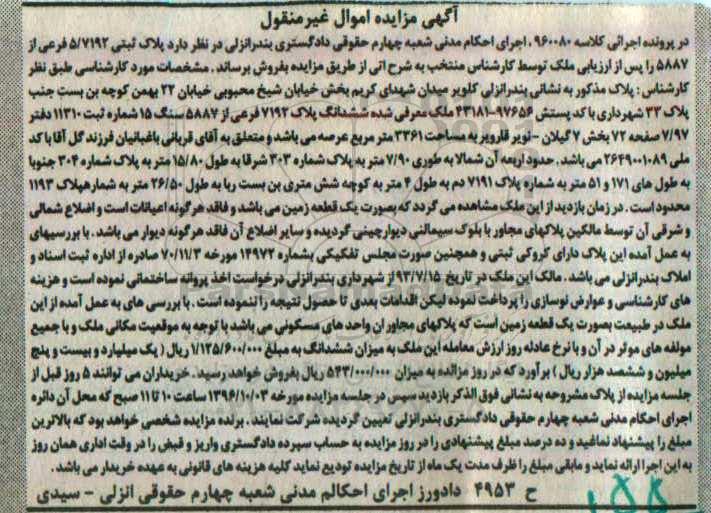 آگهی مزایده اموال غیرمنقول
در پرونده اجرائی کلاسه ۹۶۰۰۸۰، اجرای احکام مدنی شعبه چهارم حقوقی دادگستری بندرانزلی در نظر دارد پلاک ثبتی ۵/۷۱۹۲ فرعی از
۵۸۸۷ را پس از ارزیابی ملک توسط کارشناس منتخب به شرح اتی از طریق مزایده بفروش برساند. مشخصات مورد کارشناسی طبق نظر
کارشناس: پلاک مذکور به نشانی بندرانزلی کلویر میدان شهدای کریم بخش خیابان شیخ محبوبی خیابان ۲۲ بهمن کوچه بن بست جنب
پلاک ۳۳ شهرداری با کد پستش ۹۷۶۵۶-۴۳۱۸۱ ملک معرفی شده ششدانگ پلاک ۷۱۹۲ فرعی از ۵۸۸۷ سنگ ۱۵ شماره ثبت ۱۱۳۱۰ دفتر
۷/۹۷ صفحه ۷۲ بخش ۷ گیلان - نویر قارویر به مساحت ۳۳۶۱ متر مربع عرصه می باشد و متعلق به آقای قربانی باغبانیان فرزند گل آقا با کد
ملی ۲۶۴۹۰۰۱۰۸۹ می باشد. حدود اربعه آن شمالا به طوری ۷/۹۰ متر به پلاک شماره ۳۰۳ شرقا به طول ۱۵/۸۰ متر به پلاک شماره ۳۰۴ جنوبا
به طول های ۱۷۱ و ۵۱ متر به شماره پلاک ۷۱۹۱ دم به طول ۴ متر به کوچه شش متری بن بست ربا به طول ۲۶/۵۰ متر به شمارهپلاک ۱۱۹۳
محدود است. در زمان بازدید از این ملک مشاهده می گردد که بصورت یک قطعه زمین می باشد و فاقد هرگونه اعیانات است و اضلاع شمالی
و شرقی آن توسط مالکین پلاکهای مجاور با بلوک سیمانی دیوارچینی گردیده و سایر اضلاع آن فاقد هرگونه دیوار می باشد. با بررسیهای
به عمل آمده این پلاک دارای کروکی ثبتی و همچنین صورت مجلس تفکیکی بشماره ۱۴۹۷۲ مورخه ۷۰/۱۱/۳ صادره از اداره ثبت اسناد و
املاک بندرانزلی می باشد. مالک این ملک در تاریخ ۹۳/۷/۱۵ از شهرداری بندرانزلی درخواست اخذ پروانه ساختمانی نموده است و هزینه
های کارشناسی و عوارض نوسازی را پرداخت نموده لیکن اقدامات بعدی تا حصول نتیجه را ننموده است. با بررسی های به عمل آمده از این
ملک در طبیعت بصورت یک قطعه زمین است که پلاکهای مجاور ان واحد های مسکونی می باشد با توجه به موقعیت مکانی ملک و با جمیع
مولفه های موثر در آن و با نرخ عادله روز ارزش معامله این ملک به میزان ششدانگ به مبلغ ۱/۱۲۵/۶۰۰/۰۰۰ ریال (یک میلیارد و بیست و پنج
میلیون و ششصد هزار ریال) برآورد که در روز مزائده به میزان ۵۴۳/۰۰۰/۰۰۰ ریال بفروش خواهد رسید. خریداران می توانند ۵ روز قبل از
جلسه مزایده از پلاک مشروحه به نشانی فوق الذکر بازدید سپس در جلسه مزایده مورخه ۱۳۹۶/۱۰/۰۳ ساعت ۱۰ تا ۱۱ صبح که محل آن دائره
اجرای احکام مدنی شعبه چهارم حقوقی دادگستری بندرانزلی تعیین گردیده شرکت نمایند. برنده مزایده شخصی خواهد بود که بالاترین
مبلغ را پیشنهاد نماغید و ده درصد مبلغ پیشنهادی را در روز مزایده به حساب سپرده دادگستری واریز و قبض را در وقت اداری همان روز
به این اجرا ارائه نماید و مابقی مبلغ را ظرف مدت یک ماه از تاریخ مزایده تودیع نماید کلیه هزینه های قانونی به عهده خریدار می باشد.
ح ۴۹۵۳ دادورز اجرای احکالم مدنی شعبه چهارم حقوقی انزلی - سیدی